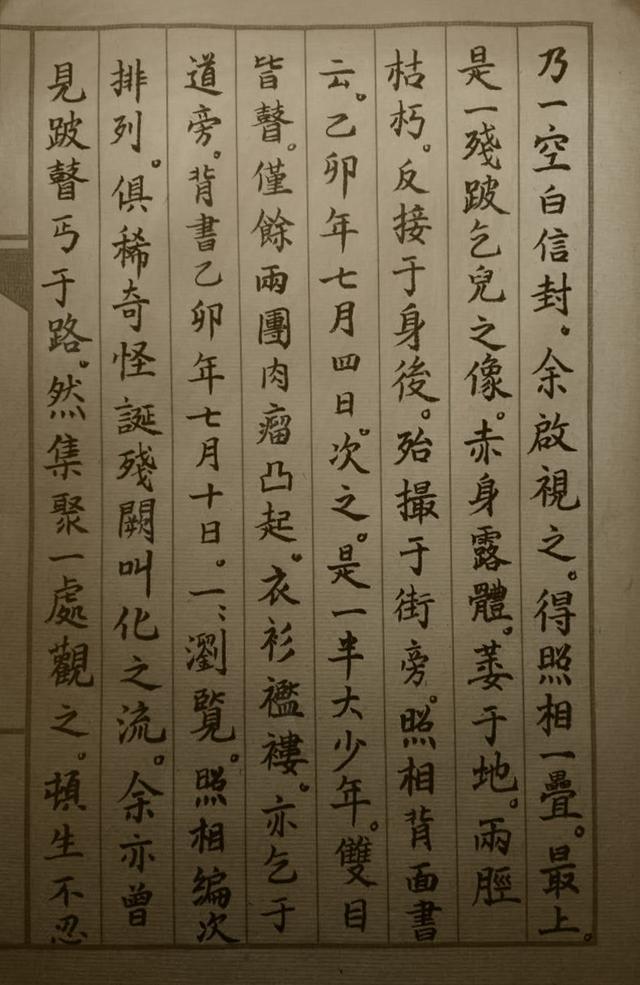 乃一空白信封。余啟視之。得照相一疊。最上。
是一殘跛乞兒之像。赤身露體。萎于地。兩脛
枯朽。反接于身後。殆撮于街旁。照相背面書
云。乙卯年七月四日。次之。是一半大少年。雙目
皆瞽。僅餘兩團肉瘤凸起。衣衫襤褸。亦乞于
道旁。背書乙卯年七月十日。一〻瀏覧。照相編次
排列。俱稀奇怪誕殘闕叫化之流。余亦曾
見跛瞽丐于路。然集聚一處觀之。頓生不忍